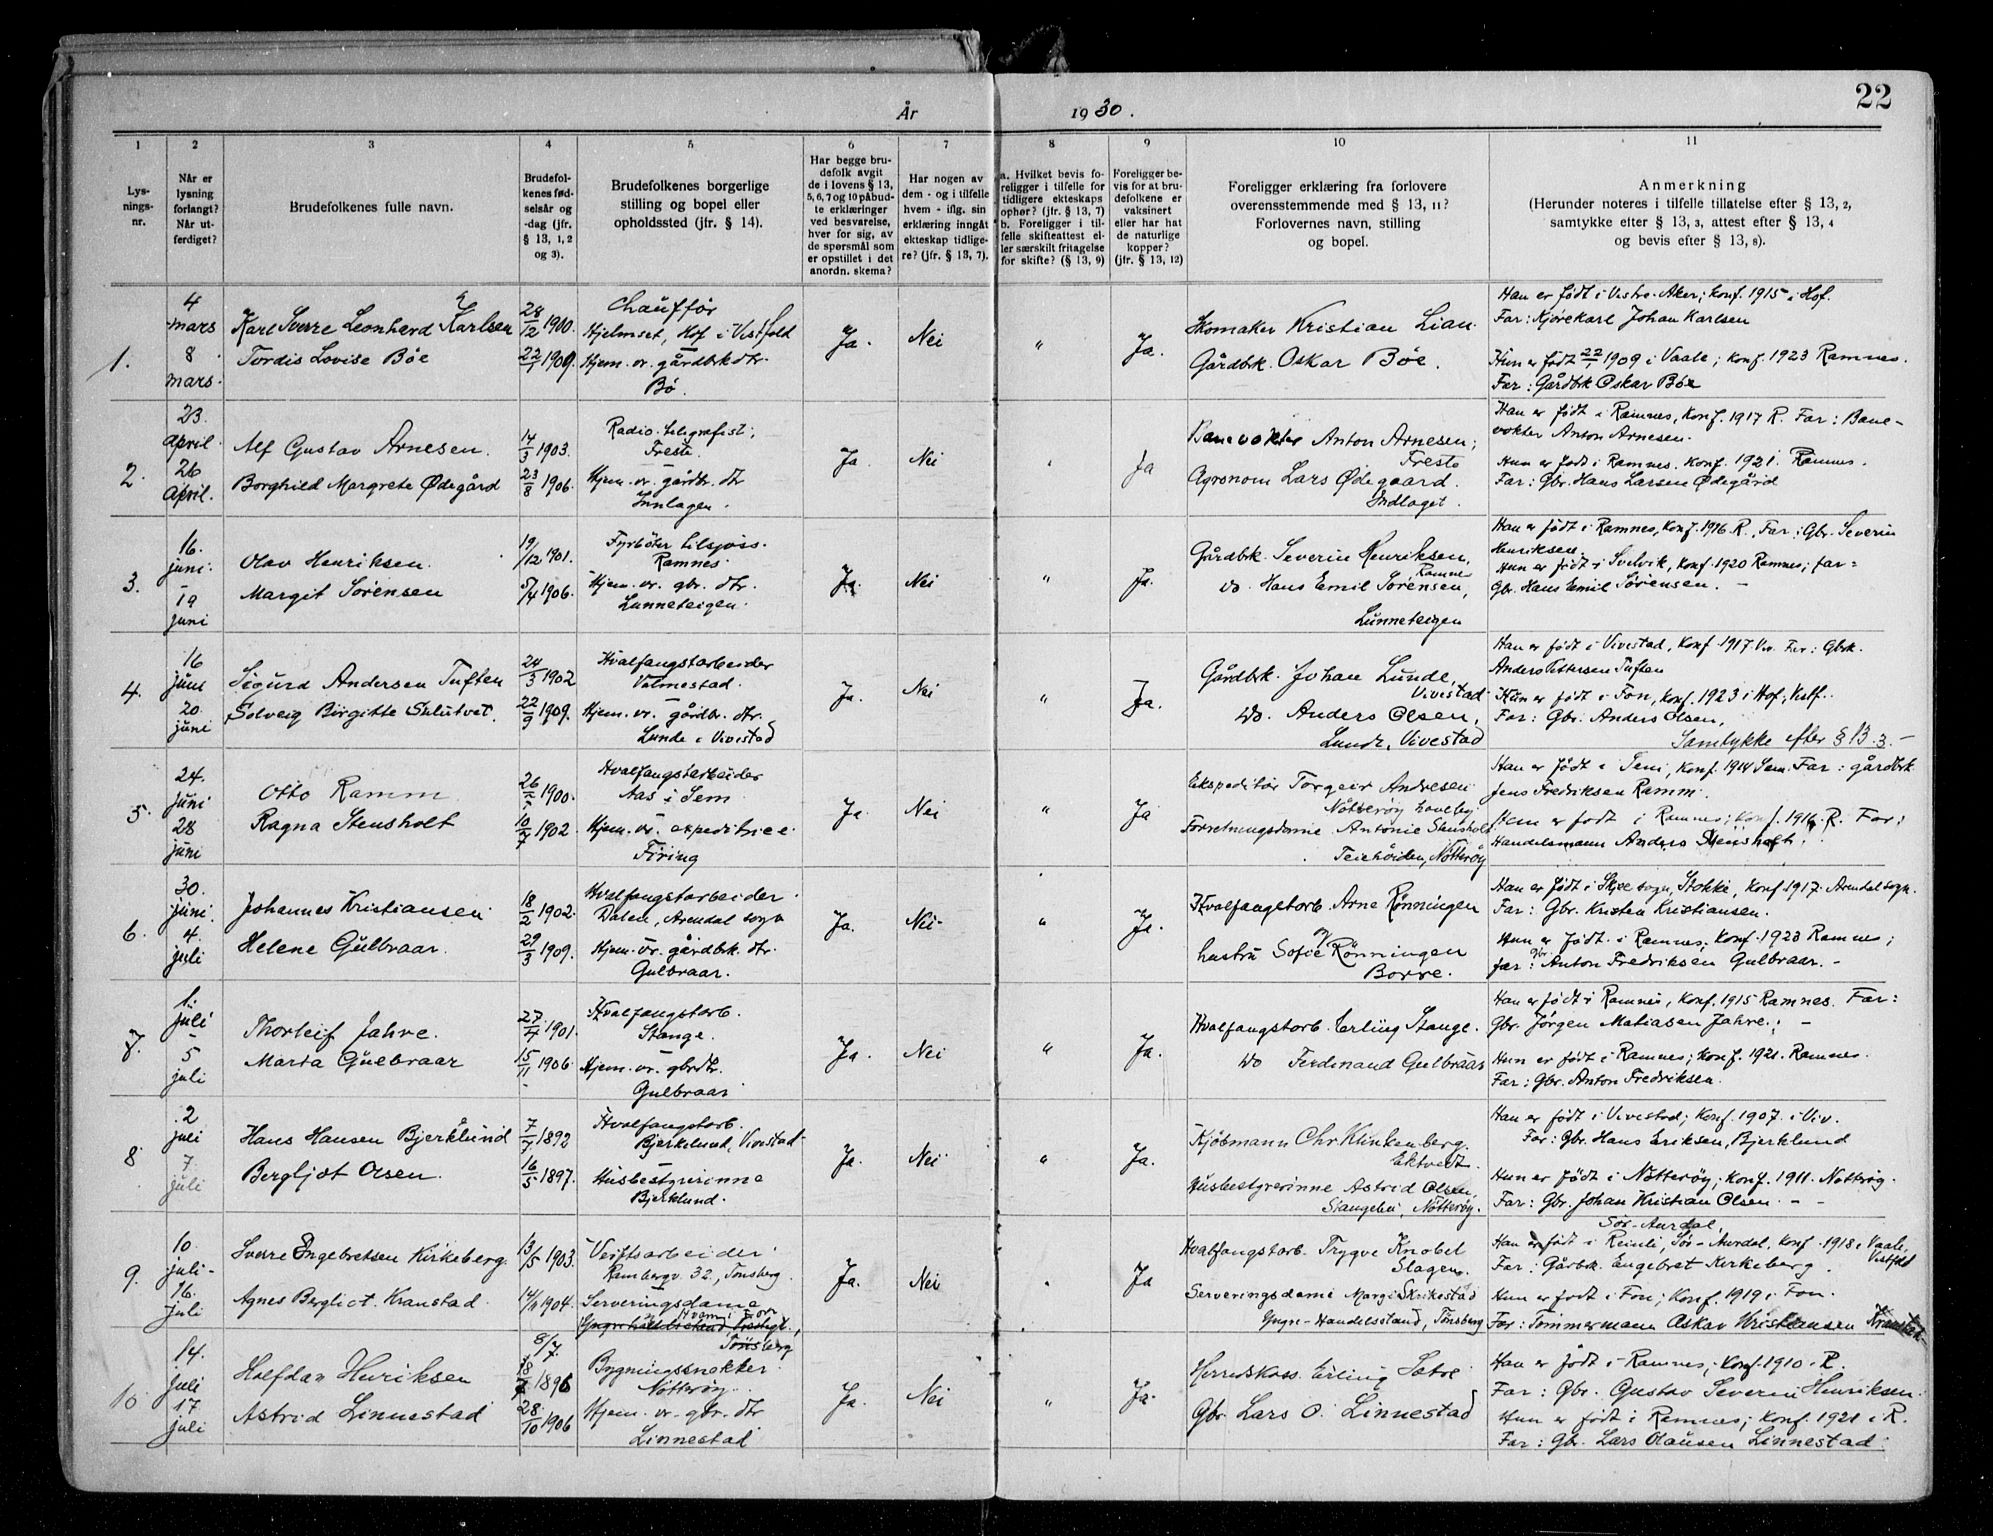 22
År 1930.
1 2 3 4 5 6 7 8 9 10 11
Lys-
nings-
nr.
Når er
lysning
forlangt?
Når ut-
ferdiget?
Brudefolkenes fulle navn.
Brudefol-
kenes fød-
selsår og
-dag (jfr.
§ 13, 1, 2
og 3).
Brudefolkenes borgerlige
stilling og bopel eller
opholdssted (jfr. § 14).
Har begge bru-
defolk avgit
de i lovens § 13,
5, 6, 7 og 10 påbud-
te erklæringer
ved besvarelse,
hver for sig, av
de spørsmål som
er opstillet i det
anordn. skema?
Har nogen av
dem - og i tilfelle
hvem - iflg. sin
erklæring inngåt
ekteskap tidlige-
re? (jfr. § 13, 7).
a. Hvilket bevis fo-
religger i tilfelle for
tidligere ekteskaps
ophør? (jfr. § 13, 7)
b. Foreligger i til-
felle skifteattest el-
ler særskilt fritagelse
for skifte? (§ 13, 9)
Foreligger be-
vis for at bru-
defolkene er
vaksinert
eller har hat
de naturlige
kopper?
(jfr. § 13, 12)
Foreligger erklæring fra forlovere
overensstemmende med § 13, 11?
Forlovernes navn, stilling
og bopel.
Anmerkning
(Herunder noteres i tilfelle tillatelse efter § 13, 2,
samtykke efter § 13, 3, attest efter § 13, 4
og bevis efter § 13, 8).
1.
4
mars
8
mars.
Karl Sverre Leonhard Karlsen
Tordis Lovise Bøe
28/12 1900.
22/1 1909.
Chauffør
Hjelmset, Hof i Vestfold
Hjem. vr. gårdbrk dtr.
Bø.
Ja.
Nei
"
Ja.
Skomaker Kristian Lian.
Gårdbrk. Oskar Bøe.
Han er født i Vestre Aker; konf. 1915 i Hof.
Far: Kjørekarl Johan Karlsen
Hun er født 22/1 1909 i Vaale; konf. 1923 Ramnes.
Far: Gårdbrk Oskar Bøe
2.
23.
April
26
April.
Alf Gustav Arnesen.
Borghild Margrete Ødegård
14/3 1903.
23/8 1906.
Radio-telegrafist;
Freste.
Hjem. vr. gårdbr. dtr
Innlagen.
Ja.
Nei
Ja
Banevokter Anton Arnesen;
Freste
Agronom Lars Ødegaard.
Indlaget.
Han er født i Ramnes, Konf. 1917 R. Far: Bane-
vokter Anton Arnesen.
Hun er født i Ramnes. Konf. 1921. Ramnes.
Far: Gbr. Hans Larsen Ødegård
3.
16.
juni.
19
juni
Olav Henriksen.
Margit Sørensen
19/12 1901.
5/4 1906.
Fyrbøter
Ramnes.
Hjem. vr. gbr. dtr.
Lunneteigen.
Ja.
Nei
"
Ja.
Gårdbk. Severin Henriksen,
Ramnes
do. Hans Emil Sørensen,
Lunneteigen
Han er født i Ramnes, Konf. 1916 R. Far: Gbr. Severin
Henriksen.
Hun er født i Svelvik, Konf. 1920 Ramnes; far:
Gbr. Hans Emil Sørensen. —
4.
16
juni
20
juni
Sigurd Andersen Tuften
Solveig Birgitte Sklutvet.
24/3 1902
22/9 1909.
Hvalfangstarbeider
Valmestad.
Hjem. vr. gårdbr. dtr.
Lunde i Vivestad
Ja.
Nei
"
Ja.
Gårdbk. Johan Lunde,
Vivestad
do. Anders Olsen,
Lunde, Vivestad
Han er født i Vivestad, Konf 1917 Viv. Far: Gbrk.
Anders Pettersen Tuften
Hun er født i Fon, Konf. 1923 i Hof, Vstf.
Far: Gbr. Anders Olsen,
Samtykke efter § 13. 3. —
5.
24.
juni
28
juni
Otto Ramm
Ragna Stensholt
1900.
10/7 1902.
Hvalfangstarbeider
Aas i Sem
Hjem. vr. expeditrice
Firing
Ja.
Nei
"
Ja
Ekspeditør Torgeir Andresen
Nøtterøy
Forretningsdame Antonie Stensholt
Teiehøiden, Nøtterøy
Han er født i Sem, Konf. 1914 Sem. Far: gårdbrk
Jens Fredriksen Ramm.
Hun er født i Ramnes; konf. 1916. R. Far:
Handelsmann Anders Stensholt.
6.
30.
juni.
4.
juli
Johannes Kristiansen
Helene Gulbraar.
18/2 1902.
29/3 1909.
Hvalfangstarbeider.
Dalen, Arendal sogn
Hjem. vr. gårdbk. dtr.
Gulbraar.
Ja.
Nei-
"
Ja.
Hvalfangstarb. Arne Rønningen
hustru Sofie Rønningen
Borre.
Han er født i Skjee sogn, Stokke, Konf 1917. Arendal sogn.
Far: Gbr. Kristen Kristiansen.
Hun er født i Ramnes; Konf. 1923 Ramnes;
far: gbr. Anton Fredriksen Gulbraar. -
7.
1.
juli
5
juli
Thorleif Jahre.
Marta Gulbraar
27/4 1901.
15/11 1906.
Hvalfangstarb.
Stange.
Hjem. vr. gbrdtr.
Gulbraar
Ja.
Nei
"
Ja.
Hvalfangstarb. Erling Stange.
do Ferdinand Gulbraar
Han er født i Ramnes, Konf. 1915 Ramnes. Far:
Gbr. Jørgen Matiasen Jahre. —
Hun er født i Ramnes; konf. 1921. Ramnes.
Far: Gbr. Anton Fredriksen.
8
2
juli
7.
juli
Hans Hansen Bjerklund
Bergljot Olsen.
7/7 1892
16/5 1897.
Hvalfangstarb.
Bjerkelund, Vivestad
Husbestyrerinne
Bjerklund.
Ja.
Nei
"
Ja.
Kjøbmann Chr Klinkenberg.
Ektvedt.
Husbestyrerinne Astrid Olsen,
Stangebu, Nøtterøy.
Han er født i Vivestad; Konf. 1907. i Viv.
Far: Gbr. Hans Eriksen, Bjerklund
Hun er født i Nøtterøy; Konf. 1911. Nøtterøy.
Far: Gbr. Johan Kristian Olsen. - -
9.
10.
juli-
16.
juli
Sverre Engebretsen Kirkeberg.
Agnes Bergliot. Kranstad.
13/5 1903.
14/11 1904.
Verftsarbeider
Rambergv. 32, Tønsberg
Serveringsdame
Hvam i Fon
Tønsberg
Ja.
Nei
Ja
Hvalfangstarb. Trygve Knobel
Slagen.
Serveringsdame Margit Skrikestad
Yngre-Handelsstand, Tønsberg
Sør-Aurdal,
Han er født i Reinli, Sør-Aurdal, konf 1918 i Vaale,
Vestfold
Far: Gårbk. Engebret Kirkeberg.
Hun er født i Fon; Konf. 1919 i Fon.
Far: Tømmermann Oskar Kristiansen Kranstad.
10
14.
juli
17
juli
Halfdan Henriksen
Astrid Linnestad
8/7.
1896
28/10 1906
Bygningssnekker
Nøtterøy.
Hjem. vr. gbr. dtr
Linnestad
Ja.
Nei
"
Ja.
Herredskass. Erling Satre
Gbr. Lars O. Linnestad
Han er født i Ramnes, Konf. 1910. R.
Far: Gbr. Gustav Severin Henriksen.
Hun er født i Ramnes; Konf. 1921 i R.
Far: Gbr. Lars Olausen Linnestad.